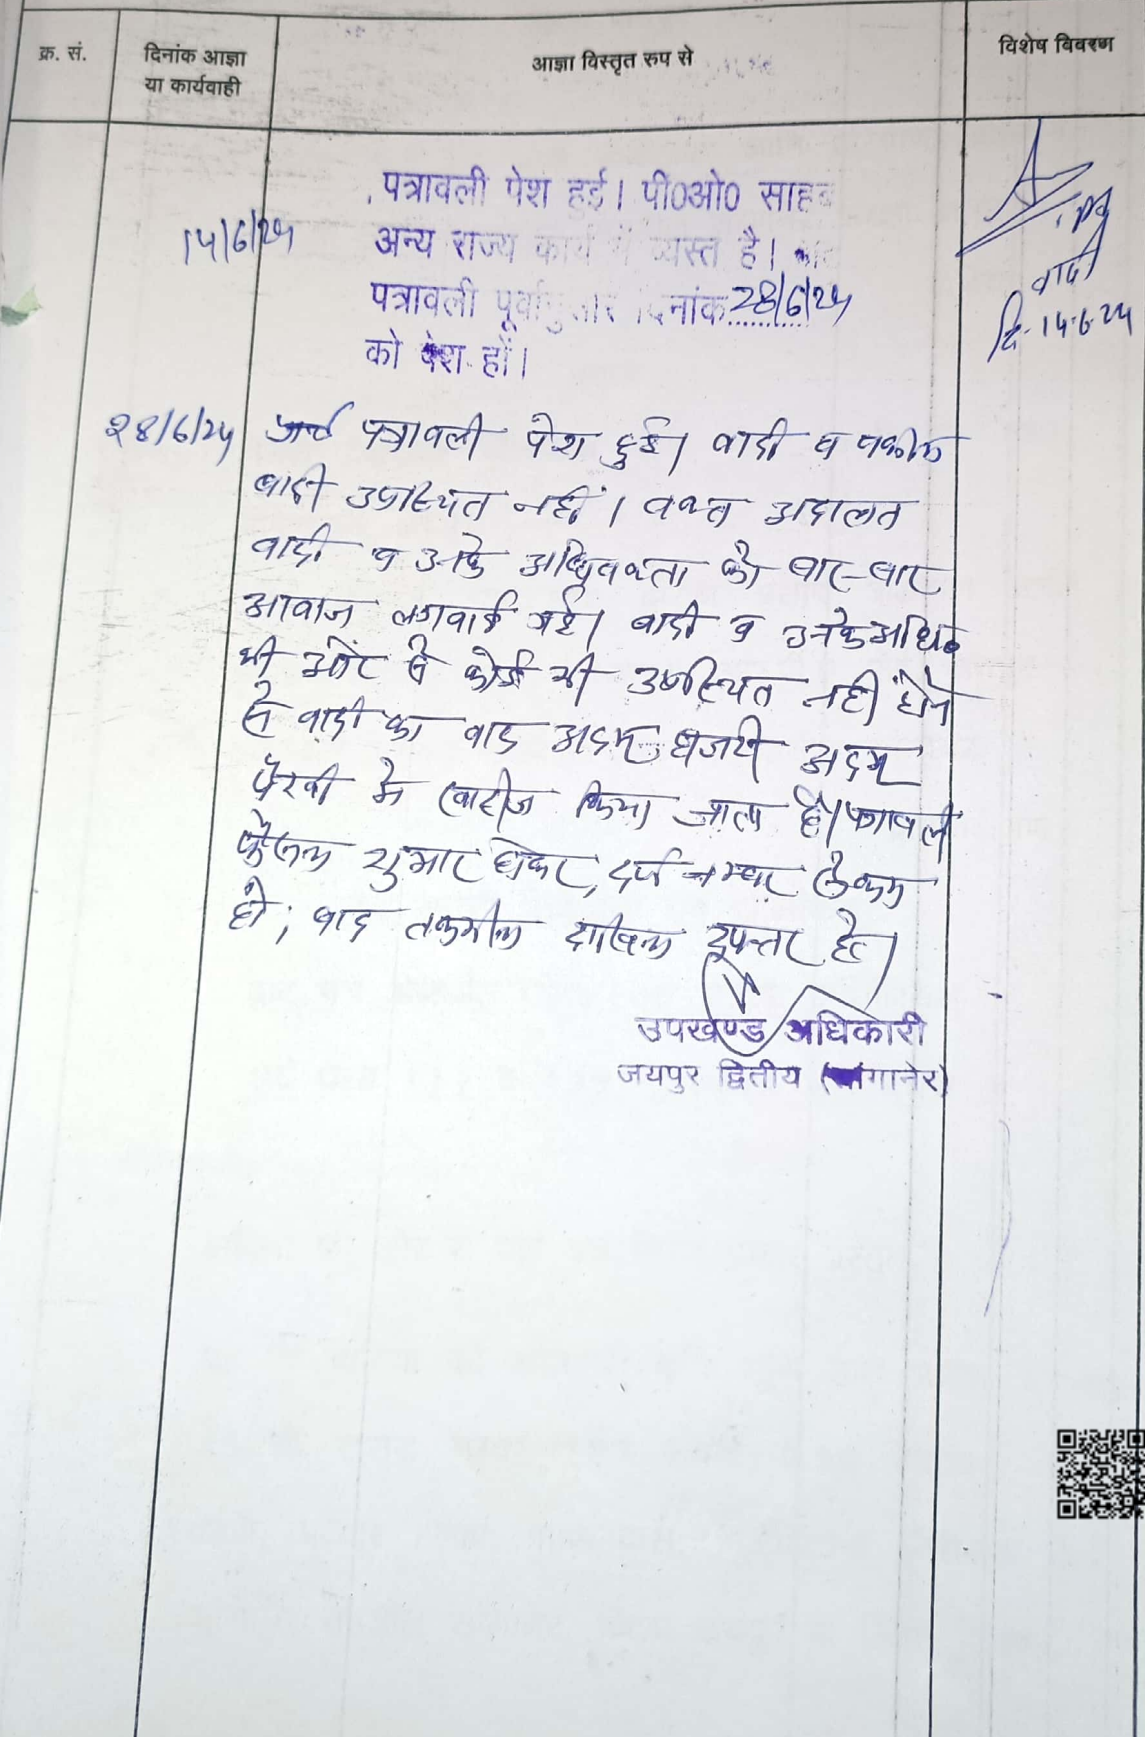 क्र. सं.
दिनांक आज्ञा
या कार्यवाही
आज्ञा विस्तृत रुप से
विशेष विवरण
पत्रावली पेश हुई। पी०ओ० साहब
14/6/24
अन्य राज्य कार्य में व्यस्त है।
पत्रावली पूर्वानुसार दिनांक 28/6/24
को पेश हों।
वादी
दि-14.6.24
28/6/24
पत्रावली पेश हुई। वादी व वकील
वादी उपस्थित नहीं। वक्त अदालत
वादी व उनके अधिवक्ता को बार-बार
आवाज लगवाई गई। वादी व उनके अधि०
की ओर से कोई भी उपस्थित नहीं होने
से वादी का वाद अदम हाजरी अदम
पैरवी में खारीज किया जाता है। पत्रावली
फैसल शुमार होकर, दर्ज नम्बर से कम
हो, बाद तकमील दाखिल दफ्तर हो।
उपखण्ड अधिकारी
जयपुर द्वितीय (सांगानेर)